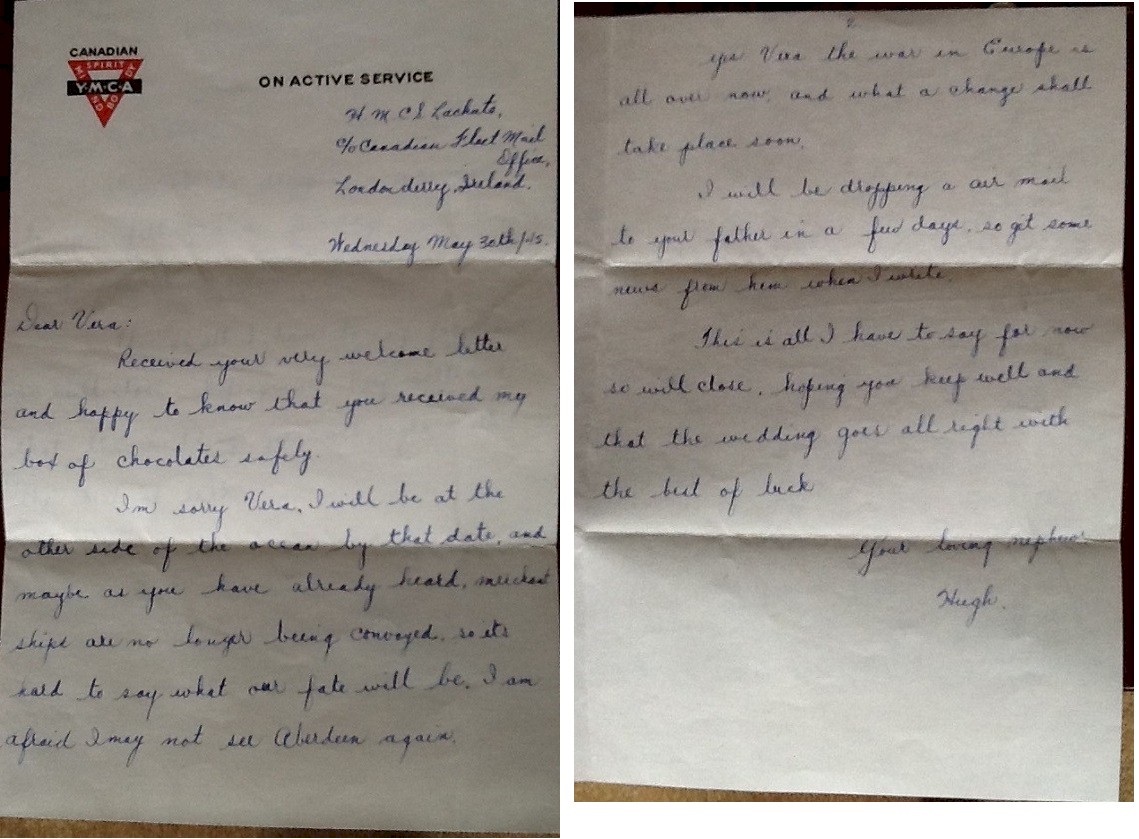 CANADIAN
SPIRIT
MIND
BODY
Y·M·C·A
ON ACTIVE SERVICE
H M C S Lachute,
c/o Canadian Fleet Mail
Office,
Londonderry, Ireland.
Wednesday May 30th/45.
Dear Vera:
Received your very welcome letter
and happy to know that you received my
box of chocolates safely.
I'm sorry Vera, I will be at the
other side of the ocean by that date, and
maybe as you have already heard, merchant
ships are no longer being convoyed, so its
hard to say what our fate will be. I am
afraid I may not see Aberdeen again.
2
yes Vera the war in Europe is
all over now, and what a change shall
take place soon.
I will be dropping a air mail
to your father in a few days, so get some
news from him when I write.
This is all I have to say for now
so will close, hoping you keep well and
that the wedding goes all right with
the best of luck
Your loving nephew
Hugh.